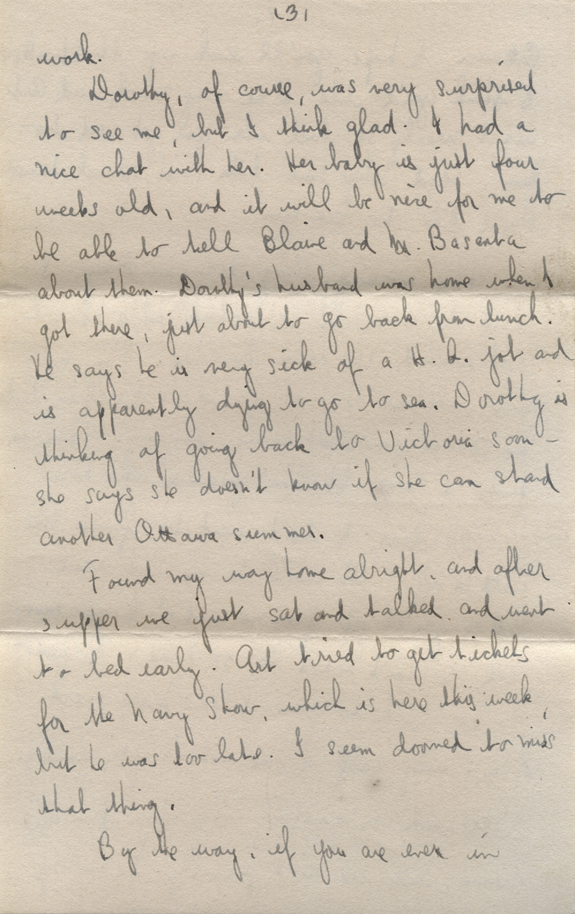 (3)
work.
Dorothy, of course, was very surprised
to see me, but I think glad. I had a
nice chat with her. Her baby is just four
weeks old, and it will be nice for me to
be able to tell Blaire and Mr. Basanta
about them. Dorothy's husband was home when I
got there, just about to go back from lunch.
He says he is very sick of a H. Q. job and
is apparently dying to go to sea. Dorothy is
thinking of going back to Victoria soon -
she says she doesn't know if she can stand
another Ottawa summer.
Found my way home alright, and after
supper we just sat and talked, and went
to bed early. Art tried to get tickets
for the Navy Show, which is here this week,
but he was too late. I seem doomed to miss
that thing.
By the way, if you are ever in